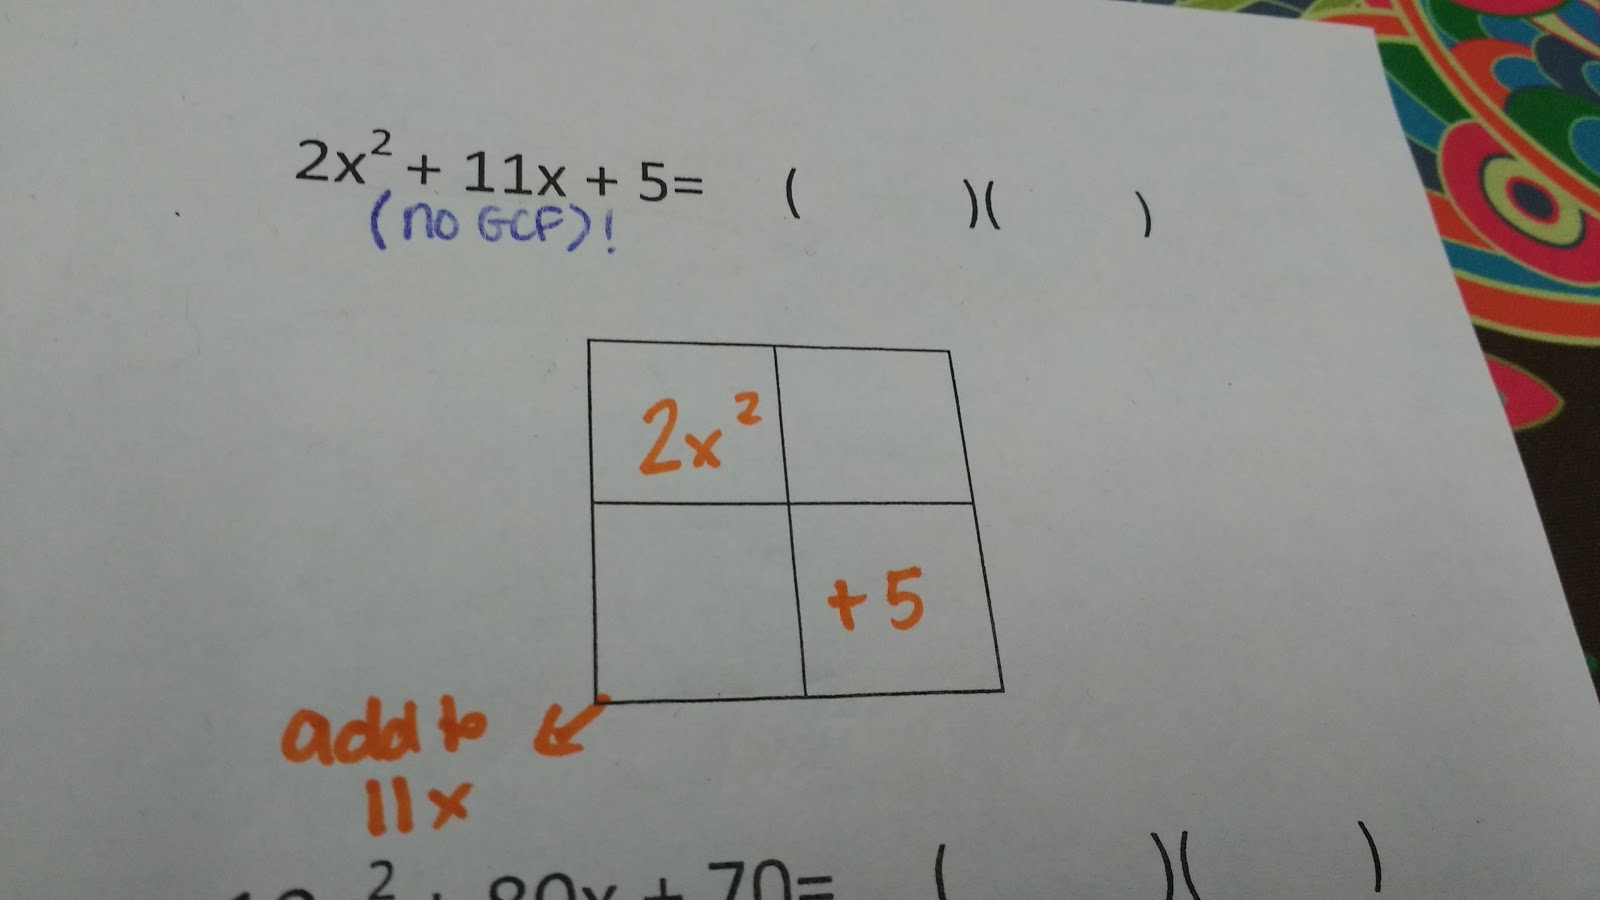 2x² + 11x + 5= (        )(        )
(no GCF)!
2x²
+5
add to
11x
² + 80x + 70= (        )(        )